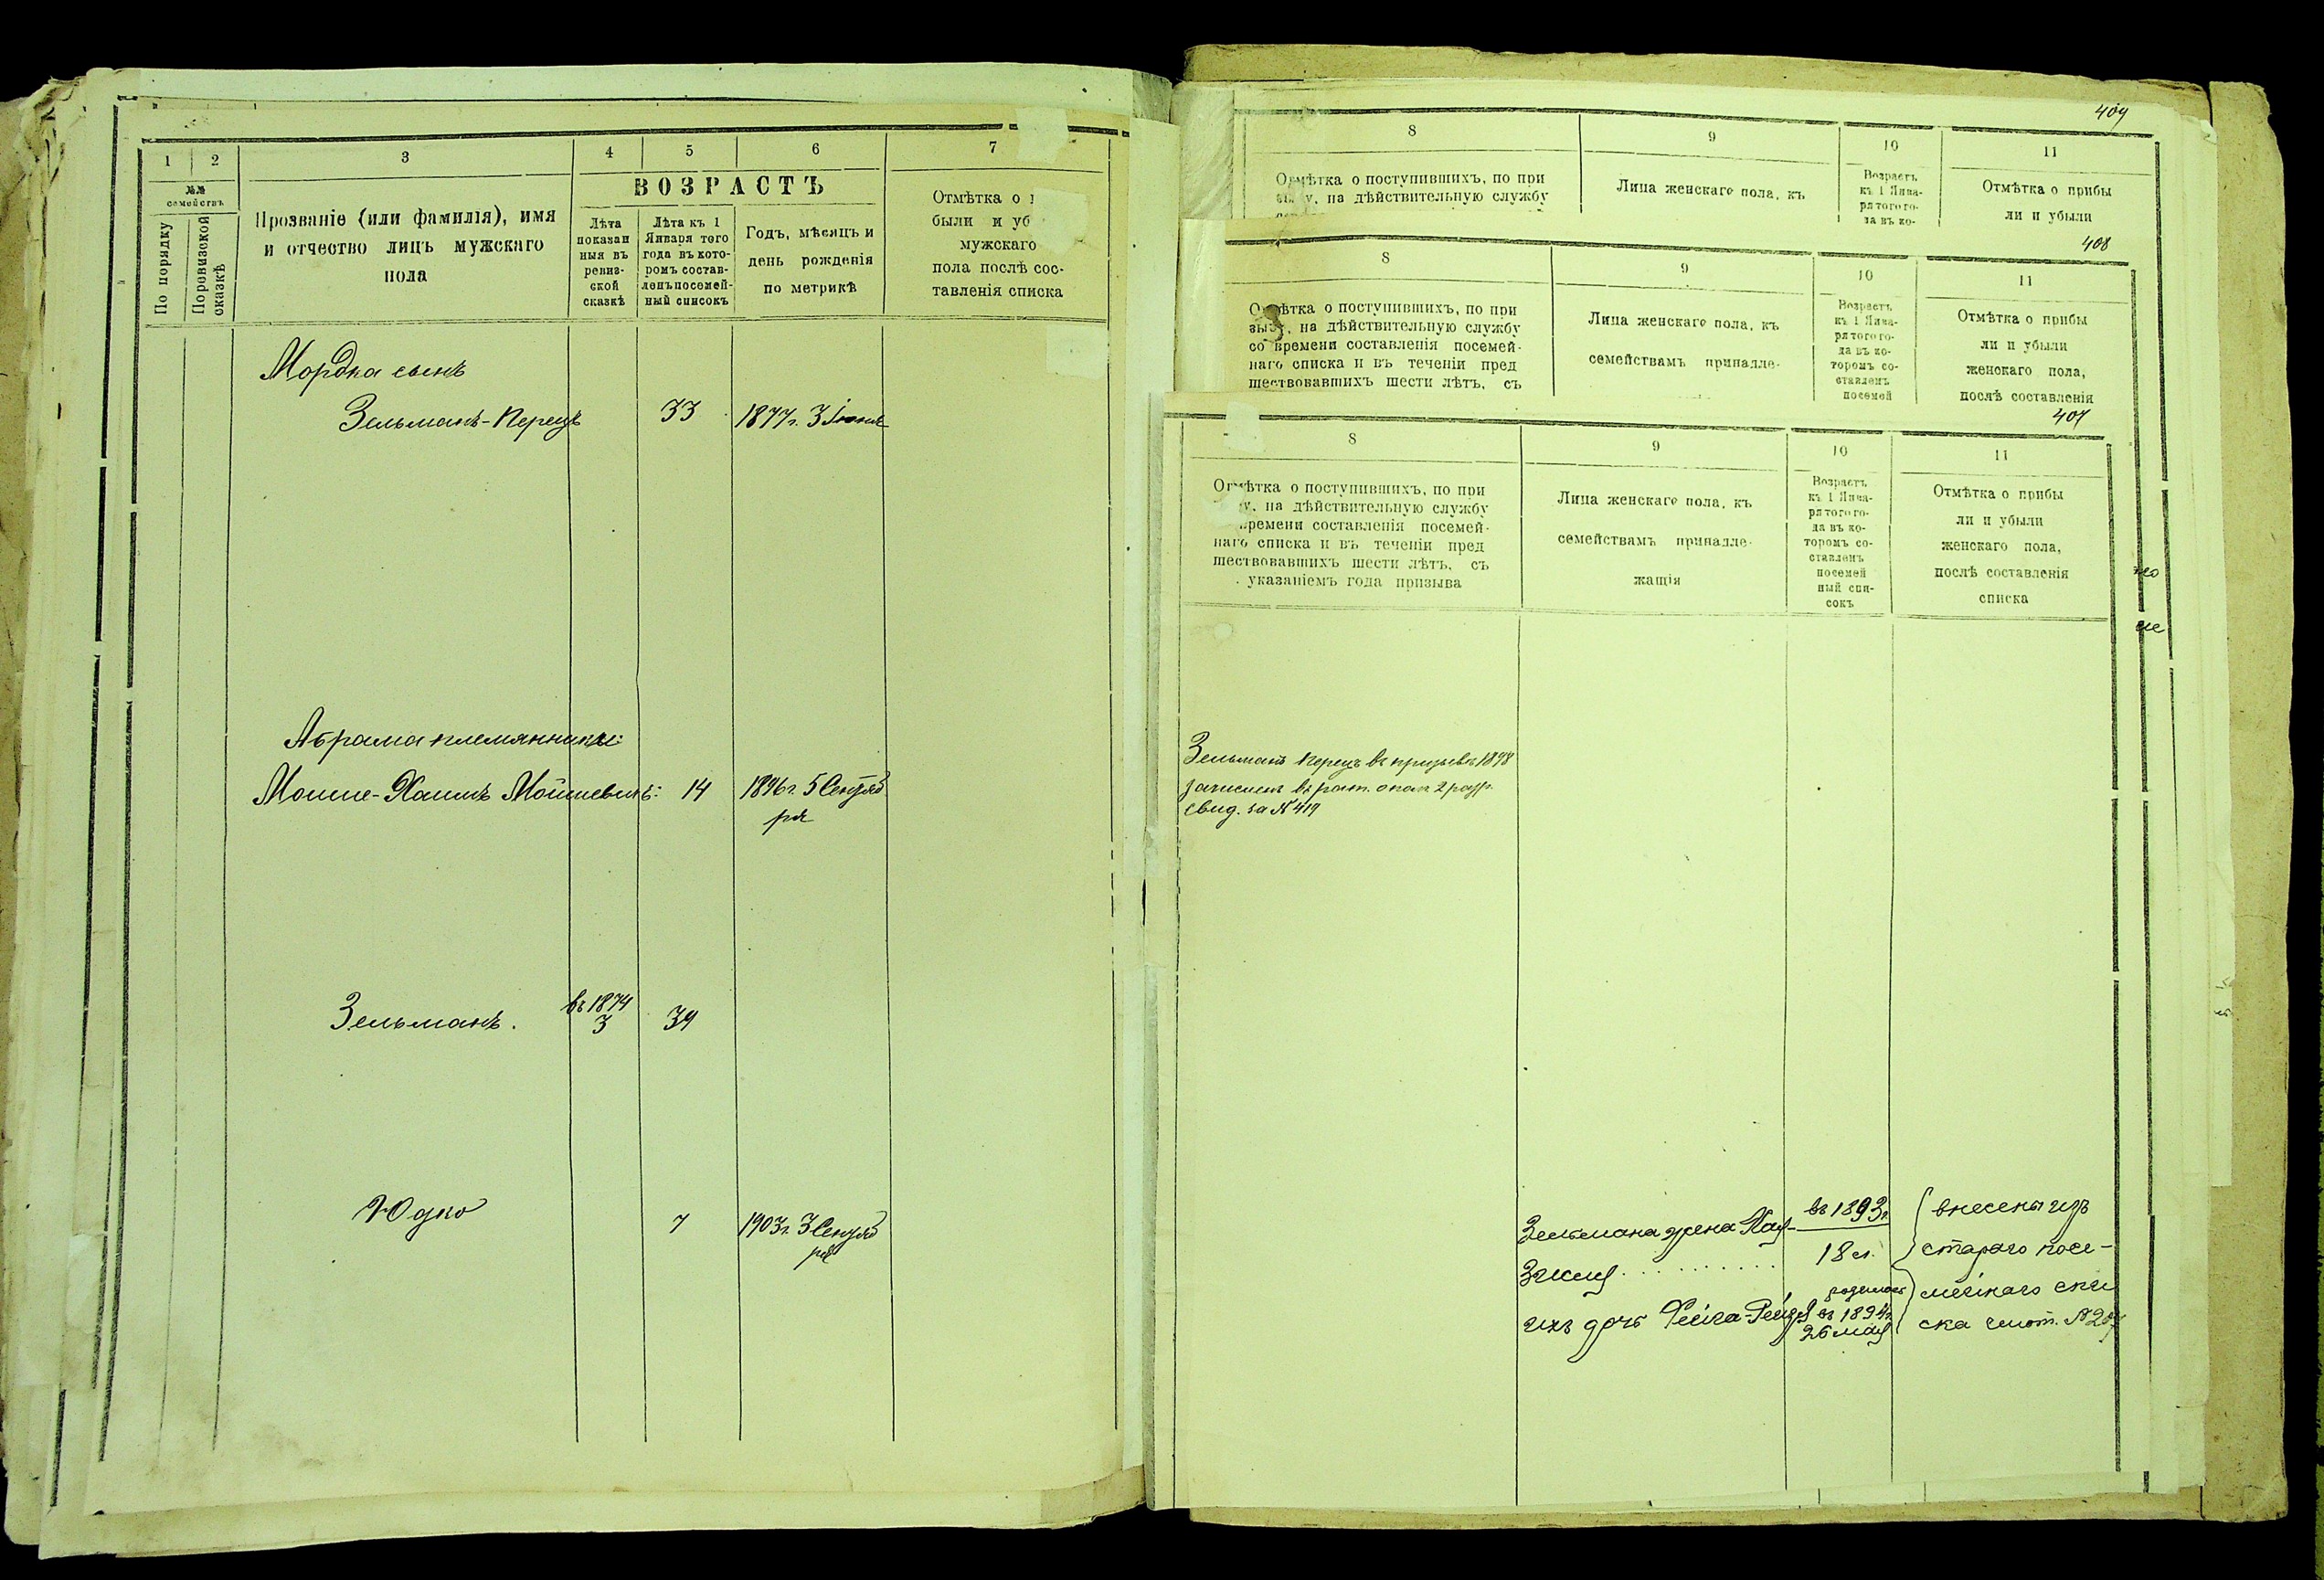 1
2
3
4
5
6
7
№№ семействъ
По порядку
По ревизской сказкѣ
Прозваніе (или фамилія), имя
и отчество лицъ мужскаго
пола
ВОЗРАСТЪ
Лѣта
показан
ныя въ
ревиз-
ской
сказкѣ
Лѣта къ 1
Января того
года въ кото-
ромъ состав-
ленъ посемей-
ный списокъ
Годъ, мѣсяцъ и
день рожденія
по метрикѣ
Отмѣтка о
были и уб
мужскаго
пола послѣ сос-
тавленія списка
Мордка сынъ
Зельманъ-Перецъ 33 1877 г. 3 Іюня
Абрама племянники:
Мошше-Хаимъ Мошшевичъ: 14 1896 г. 5 Сентяб
ря
Зельманъ. въ 1874
3 39
Юдко 7 1903 г. 3 Сентяб
ря
409
8
9
10
11
Отмѣтка о поступившихъ, по при
у, на дѣйствительную службу
Лица женскаго пола, къ
Возрастъ
къ 1 Янва-
ря того го-
да въ ко-
Отмѣтка о прибы
ли и убыли
408
8
9
10
11
Отмѣтка о поступившихъ, по при
зыву, на дѣйствительную службу
со времени составленія посемей-
наго списка и въ теченіи пред
шествовавшихъ шести лѣтъ, съ
Лица женскаго пола, къ
семействамъ принадле-
Возрастъ
къ 1 Янва-
ря того го-
да въ ко-
торомъ со-
ставленъ
посемей
Отмѣтка о прибы
ли и убыли
женскаго пола,
послѣ составленія
407
8
9
10
11
Отмѣтка о поступившихъ, по при
у, на дѣйствительную службу
времени составленія посемей-
наго списка и въ теченіи пред
шествовавшихъ шести лѣтъ, съ
указаніемъ года призыва
Лица женскаго пола, къ
семействамъ принадле-
жащія
Возрастъ
къ 1 Янва-
ря того го-
да въ ко-
торомъ со-
ставленъ
посемей
ный спи-
сокъ
Отмѣтка о прибы
ли и убыли
женскаго пола,
послѣ составленія
списка
Зельманъ Перецъ въ призывъ 1898
зачисленъ въ рат. опол. 2 разр.
свид. за № 419
Зельмана жена Хая- въ 1893 г.
Зисля 18 л.
ихъ дочь Фейга-Рейзя родилась
въ 1894 г.
26 мая
внесены изъ
стараго посе-
мейнаго спи
ска